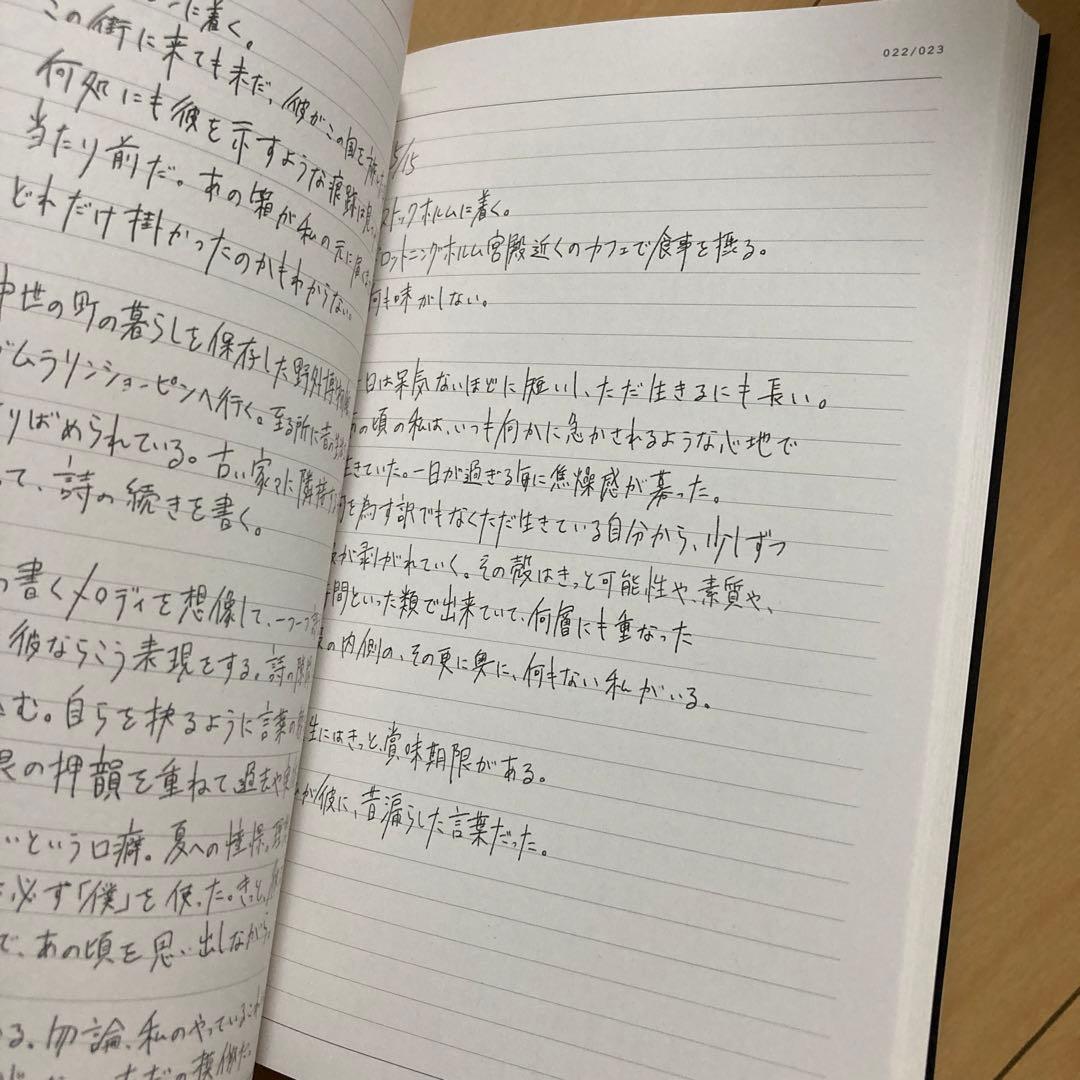 ンに着く。
この街に来ても未だ、彼がこの国を旅した
何処にも彼を示すような痕跡は見
当たり前だ。あの箱が私の元に届くま
どれだけ掛かったのかもわからない。
中世の町の暮らしを保存した野外博物館
ガムラリンショーピンへ行く。至る所に昔の
りばめられている。古い家々に隣接
って、詩の続きを書く。
書くメロディを想像して、一つ一つ
彼ならこう表現をする。詩の
む。自らを抉るように言葉の
の押韻を重ねて過去や
いという口癖。夏への憧憬。
必ず「僕」を使った。きっと
で、あの頃を思い出しながら、
る。勿論、私のやっていることは
ただの模倣だ
022/023
5/15
ストックホルムに着く。
ロットニングホルム宮殿近くのカフェで食事を摂る。
何も味がしない。
一日は呆気ないほどに短いし、ただ生きるにも長い。
あの頃の私は、いつも何かに急かされるような心地で
生きていた。一日が過ぎる毎に焦燥感が募った。
何を為す訳でもなくただ生きている自分から、少しずつ
が剥がれていく。その殻はきっと可能性や、素質や、
時間といった類で出来ていて、何層にも重なった
の内側の、その更に奥に、何もない私がいる。
人生にはきっと、賞味期限がある。
が彼に、昔漏らした言葉だった。